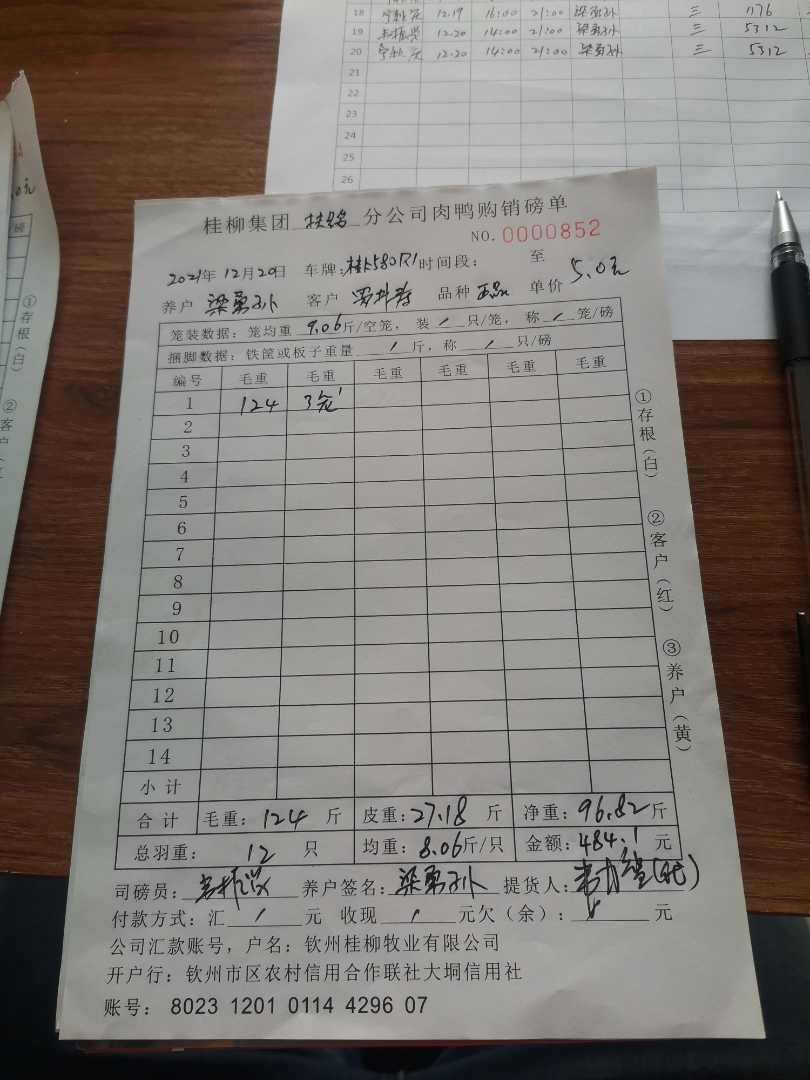 18 12.19 16:00 21:00 梁勇孙 三 1176
19 12.20 14:00 21:00 梁勇孙 三 5312
20 12.20 14:00 21:00 梁勇孙 三 5312
21
22
23
24
25
26
桂柳集团 分公司肉鸭购销磅单
NO. 0000852
2021年12月20日 车牌:桂K580R1 时间段: 至
养户 梁勇孙 客户 品种 单价 5.0元
笼装数据:笼均重 9.06斤/空笼,装 / 只/笼,称 / 笼/磅
捆脚数据:铁筐或板子重量 / 斤,称 / 只/磅
编号 毛重 毛重 毛重 毛重 毛重 毛重
1 124 3笼
2
3
4
5
6
7
8
9
10
11
12
13
14
小计
合计 毛重:124 斤 皮重:27.18 斤 净重:96.82斤
总羽重: 12 只 均重:8.06斤/只 金额:484.1 元
司磅员: 养户签名:梁勇孙 提货人:
付款方式:汇 / 元 收现 / 元欠(余): 元
公司汇款账号,户名:钦州桂柳牧业有限公司
开户行:钦州市区农村信用合作联社大垌信用社
账号: 8023 1201 0114 4296 07
①存根(白) ②客户(红) ③养户(黄)